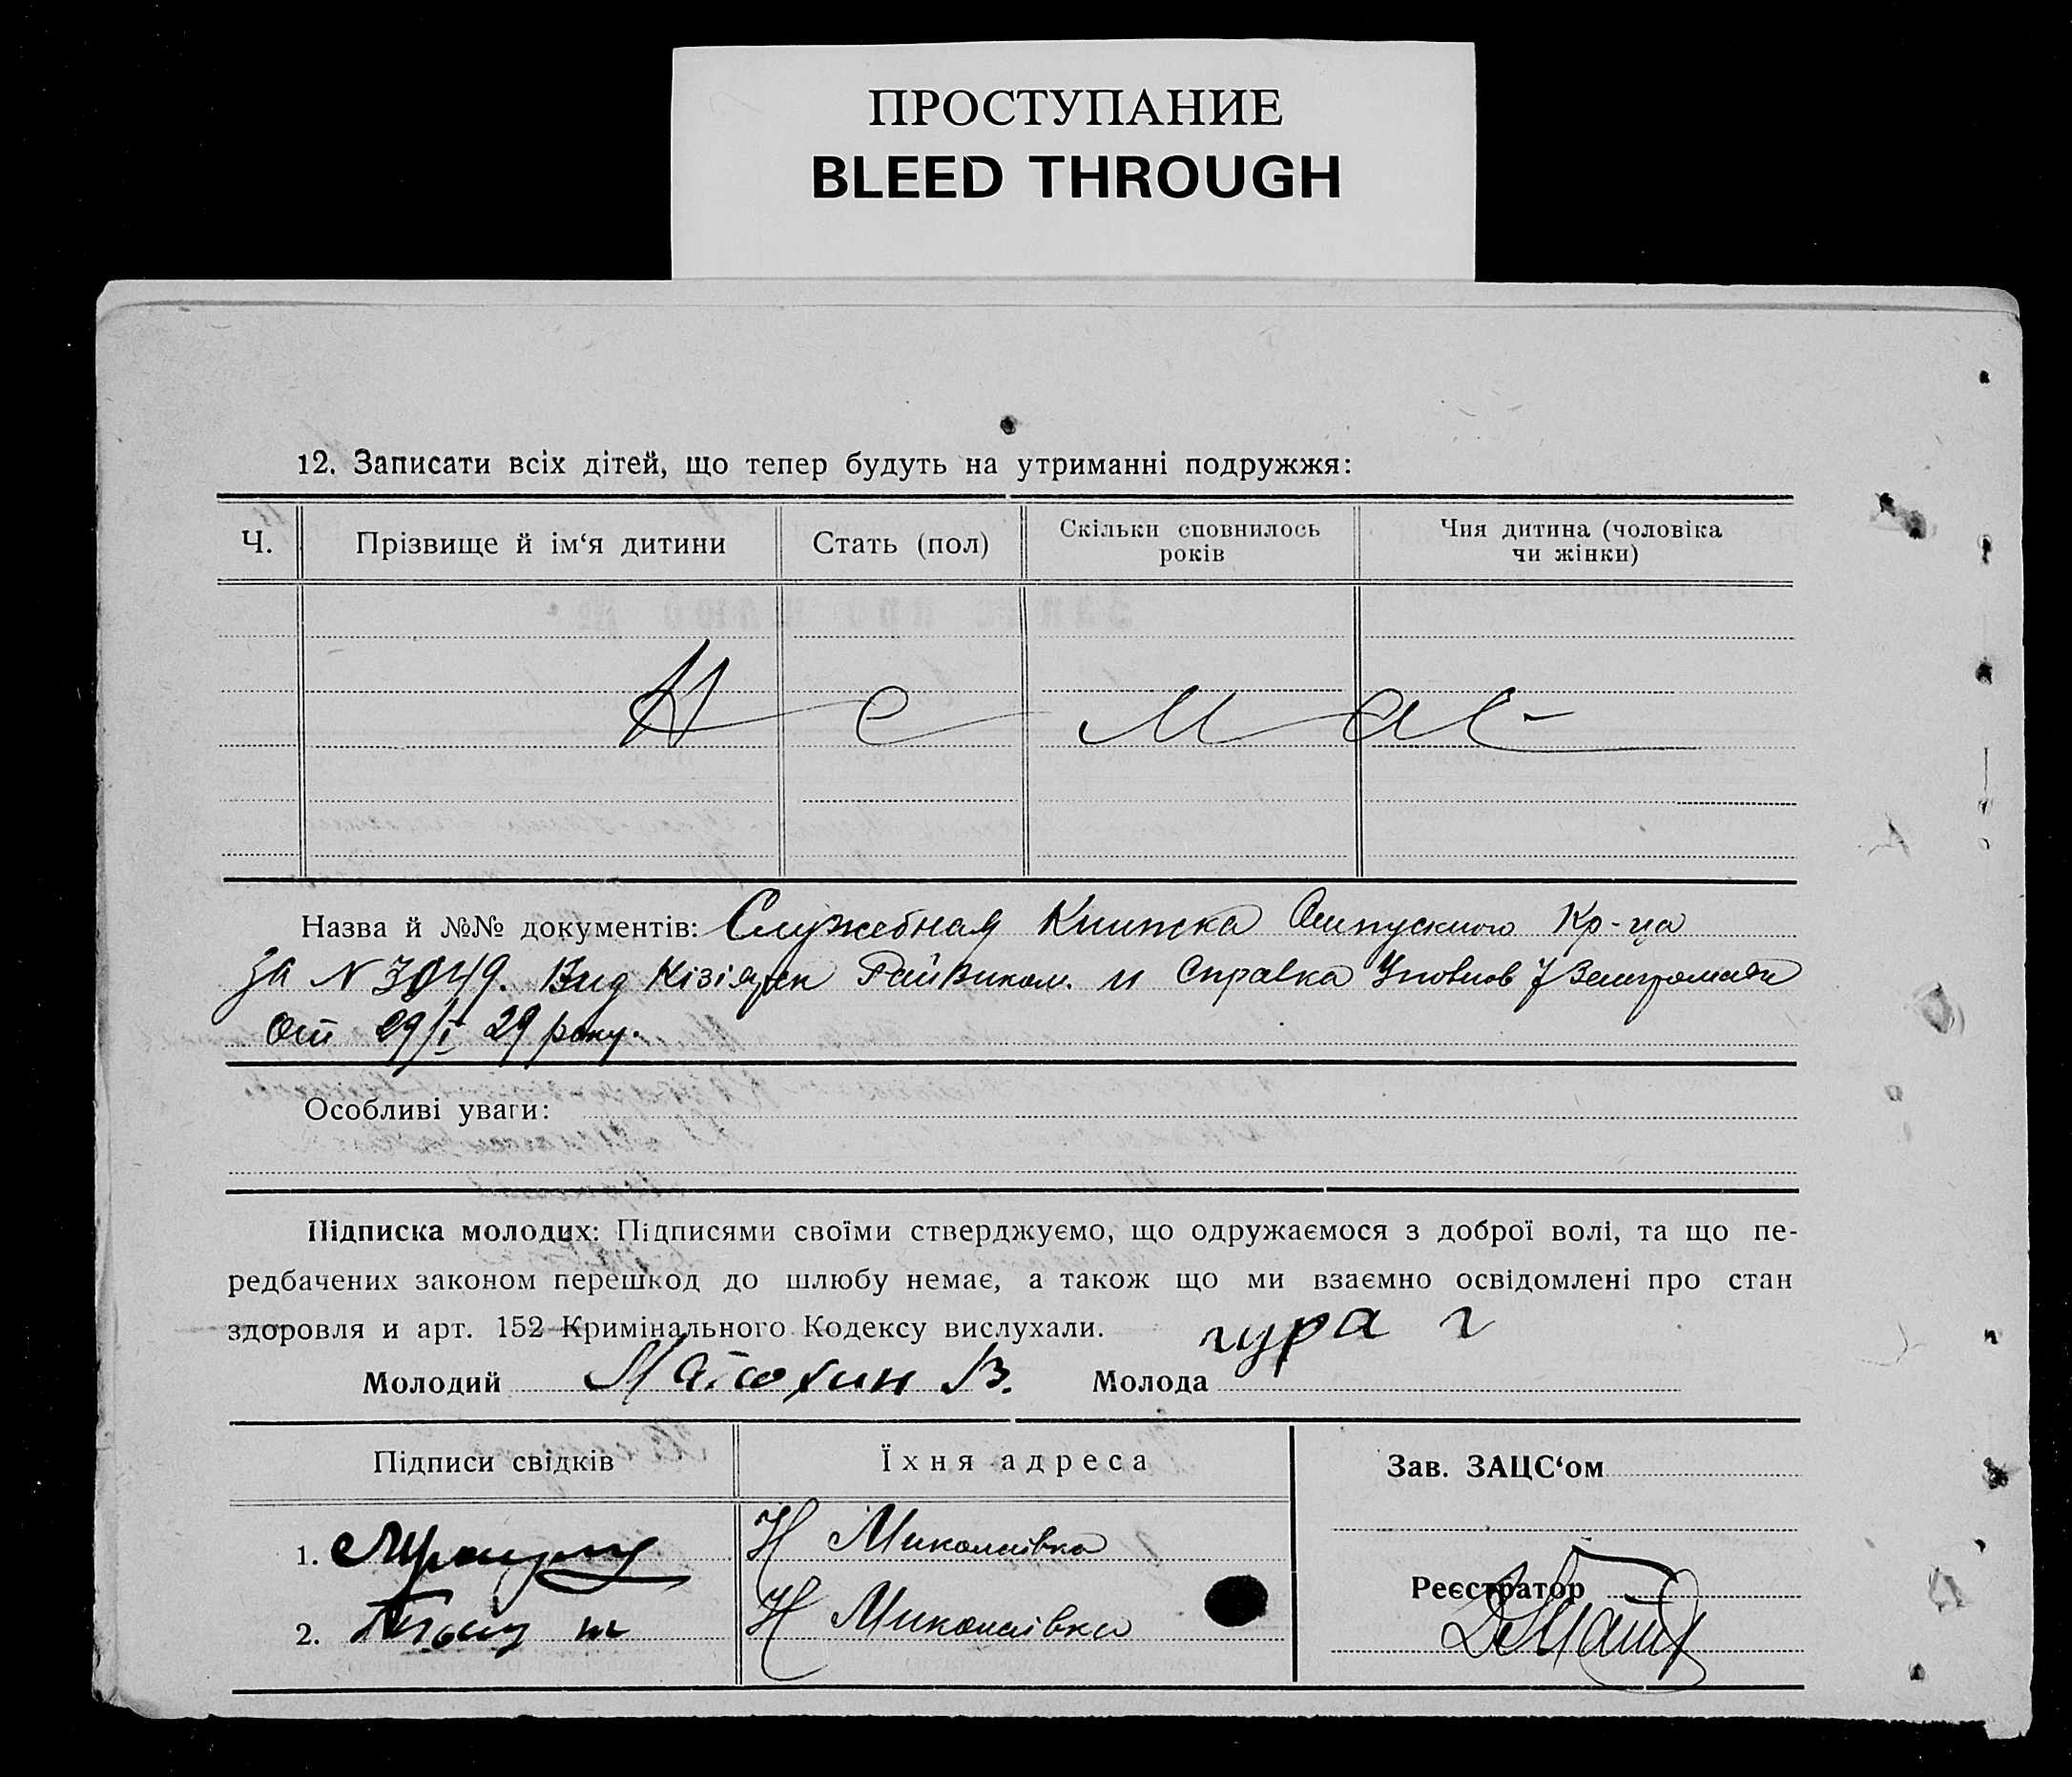 ПРОСТУПАНИЕ
BLEED THROUGH
12. Записати всіх дітей, що тепер будуть на утриманні подружжя:
Ч. Прізвище й ім‘я дитини Стать (пол) Скільки сповнилось років Чия дитина (чоловіка чи жінки)
Немає
Назва й №№ документів: Служебная Книжка Отпускного Кр-ца
за N Вид Райвиком. и Справка
От 29/I 29 року.
Особливі уваги:
Підписка молодих: Підписями своїми стверджуємо, що одружаємося з доброї волі, та що пе-
редбачених законом перешкод до шлюбу немає, а також що ми взаємно освідомлені про стан
здоровля и арт. 152 Кримінального Кодексу вислухали.
гура г
Молодий В. Молода
Підписи свідків Їхня адреса Зав. ЗАЦС‘ом
1. Н Миколаівка
Реєстратор
2. Н Миколаівка